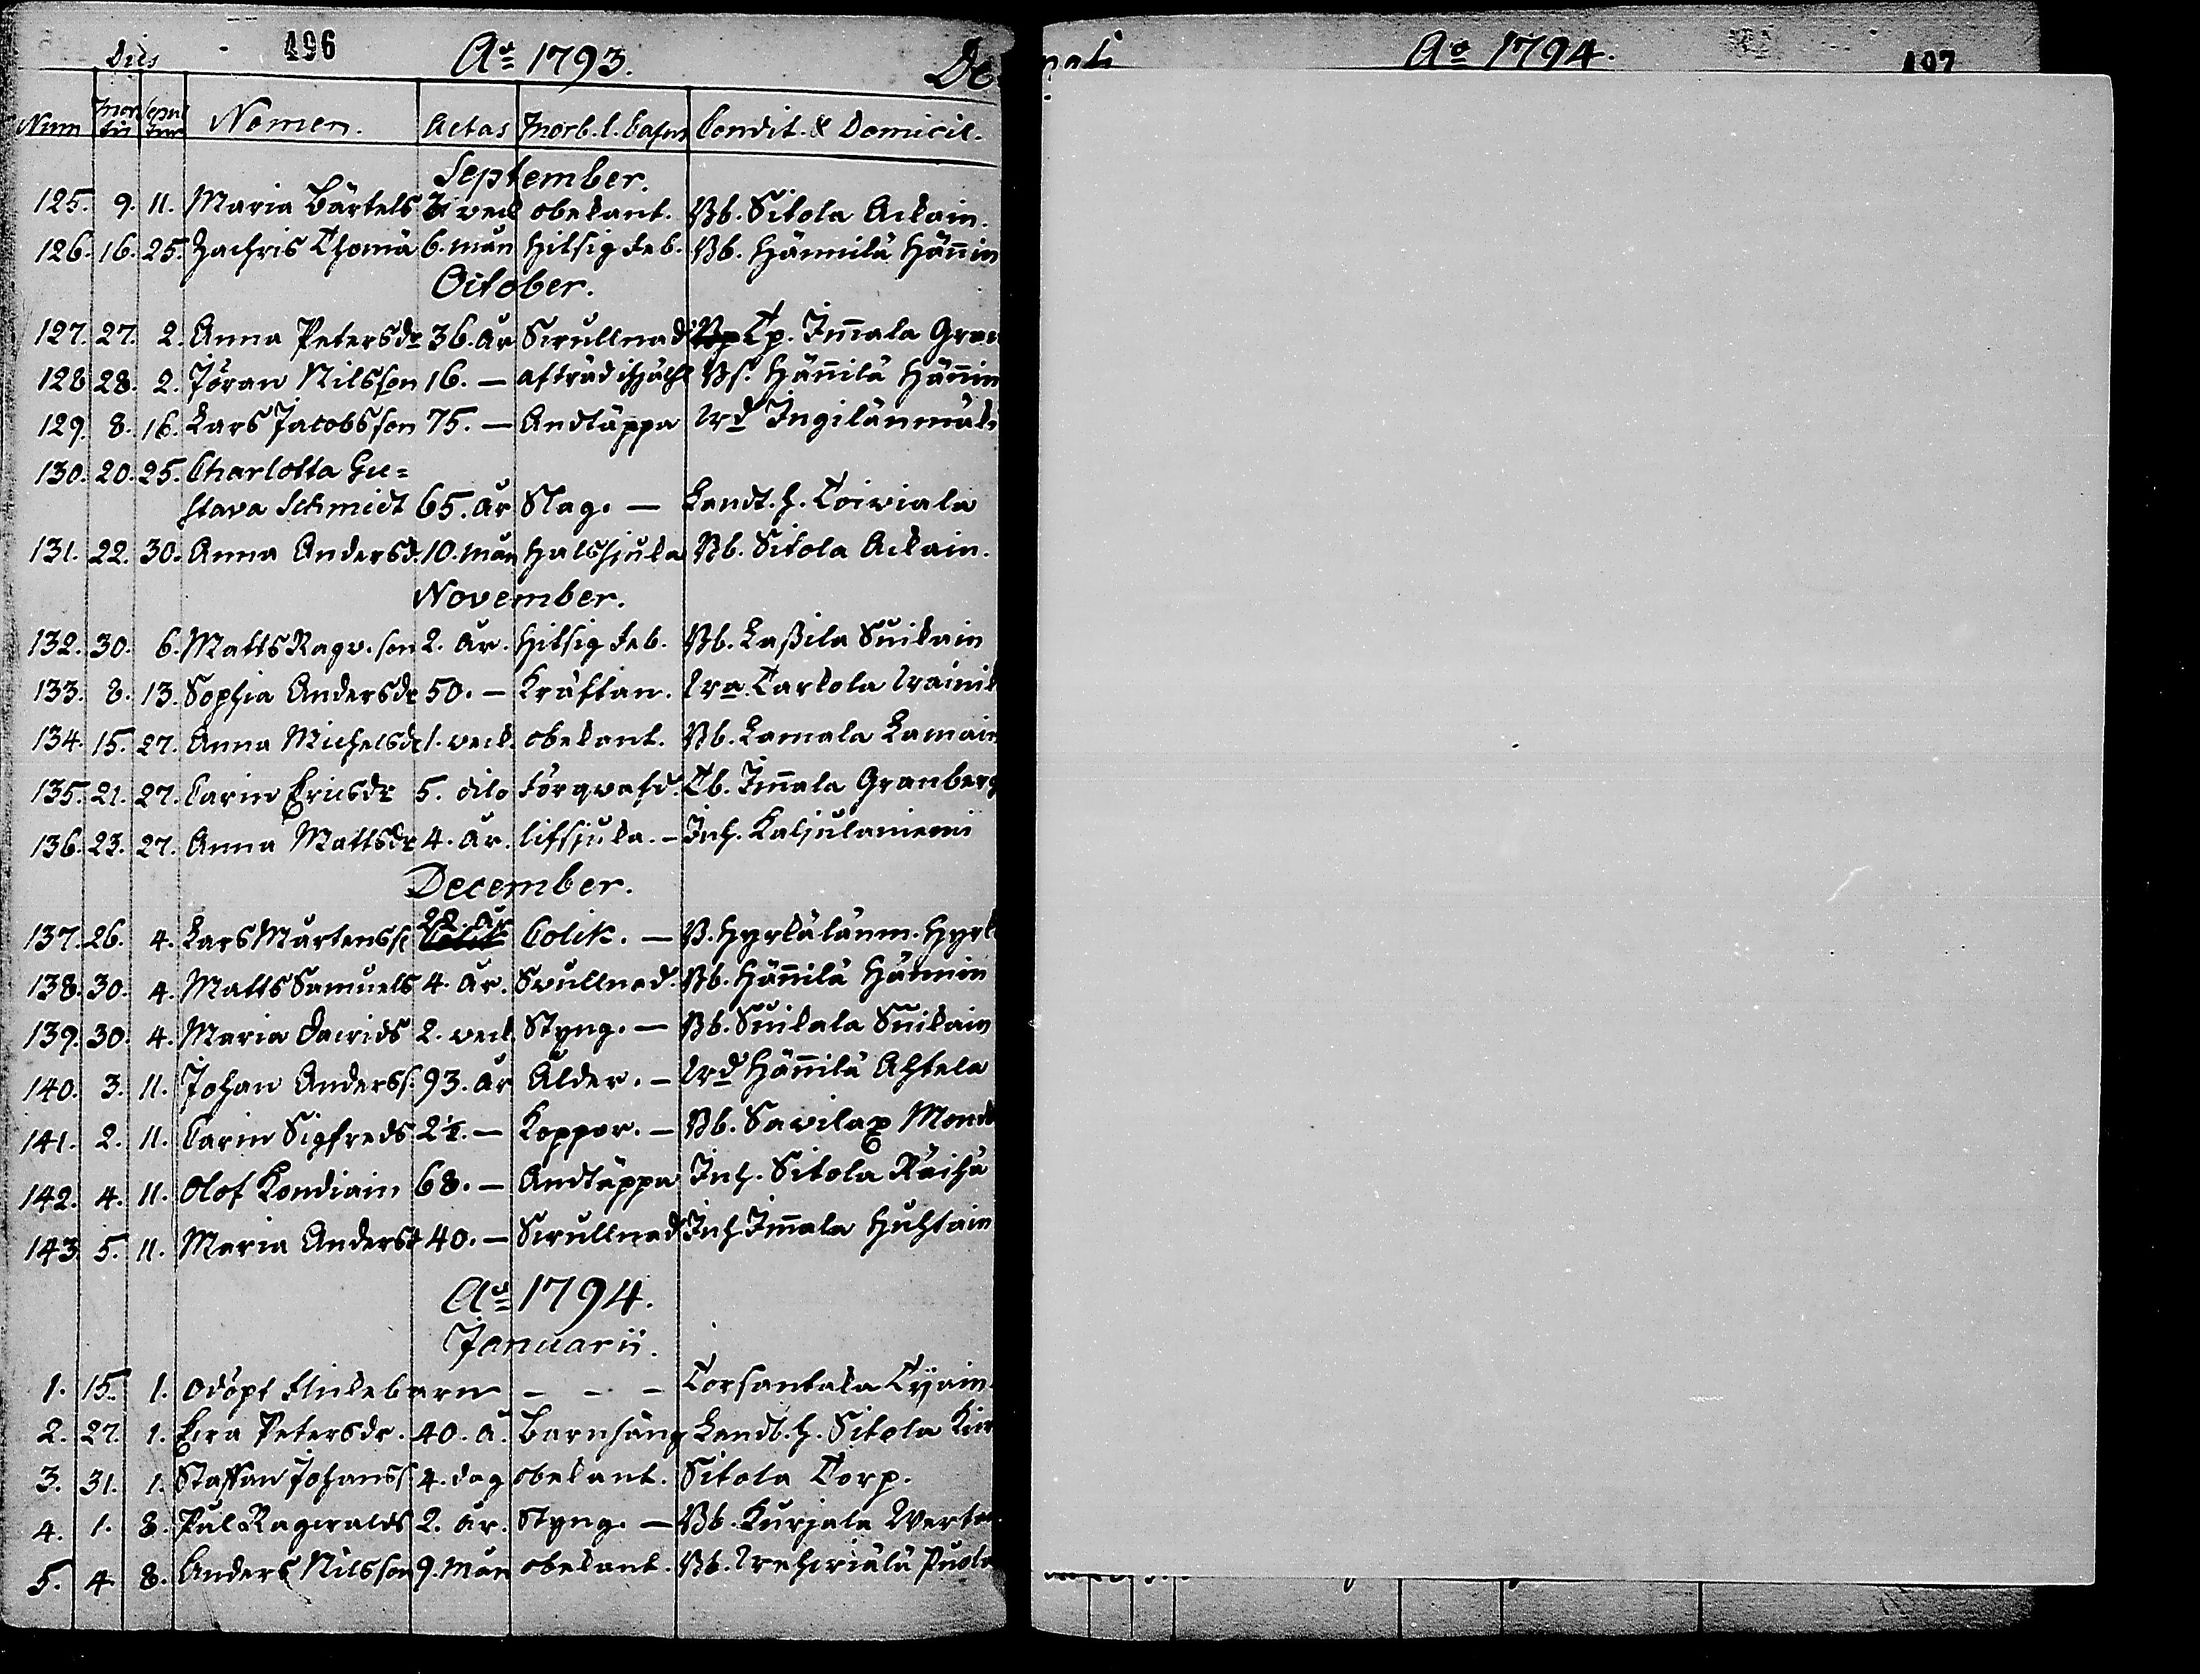 Dies 496 Ao 1793. De
Num Mortis Sepulturæ Nomen. Aetas Morb. l. Casus Condit. & Domicil.
September.
125. 9. 11. Maria Bärtels 3 veck obekant. Bb. Sitola Ackain.
126. 16. 25. Zachris Thomä 6. mån hitsig feb. Bb. Hännilä Hännin
October.
127. 27. 2. Anna Petersdr 36. år Swullnad Tp. Im̃ala Gran
128 28. 2. Jöran Nilsson 16. — Bs. Hännilä Hännin
129. 8. 16. Lars Jacobsson 75. — Andtäppa Ingilänmäki
130. 20. 25. Charlotta Gu=
stava Schmidt 65. år Slag. — Landt.h. Toiviala
131. 22. 30. Anna Andersd. 10. mån halssjuka Bb. Sitola Ackain.
November.
132. 30. 6. Matts Ragv. son 2. år. hitsig feb. Bb. Laßila Suikain
133. 8. 13. Sophia Andersdr 50. — Kräftan. Tarkola
134. 15. 27. Anna Michelsdr 1. veck. obekant. Bb. Lamala Lamain
135. 21. 27. Carin Ericsdr 5. dito förqvafd. Tb. Im̃ala Granberg
136. 23. 27. Anna Mattsdr 4. år. lifsjuka. — Inh. Kaljulaniemi
December.
137. 26. 4. Lars Mårtenss 22. år Colik. — B. Hyrkälänm. Hyrk
138. 30. 4. Matts Samuels 4. år. Svullnad. Bb. Hännilä Hännin
139. 30. 4. Maria Davids 2. veck Styng. — Bb. Suikala Suikain
140. 3. 11. Johan Anderss. 93. år Ålder. — Hännilä Ahtela
141. 2. 11. Carin Sigfreds 2½. — Koppor. — Bb. Savilax Mon
142. 4. 11. Olof Kondiain 68. — Andtäppa Inh. Sitola Räihä
143 5. 11. Maria Andersd 40. — Swullnad Inh. Im̃ala Huhtain
Ao 1794.
Januarii.
1. 15. 1. Odöpt flickebarn – – – Corsantaka Tÿain.
2. 27. 1. Eva Petersdr. 40. å. Barnsäng Landb.h. Sitola
3. 31. 1. Staffan Johanss 4. dag obekant. Sitola Torp.
4. 1. 8. Pål Ragvalds 2. år. Styng. — Bb. Kurjala
5. 4. 8. Anders Nilsson 9. mån obekant. Bb.
nati Ao 1794. 497